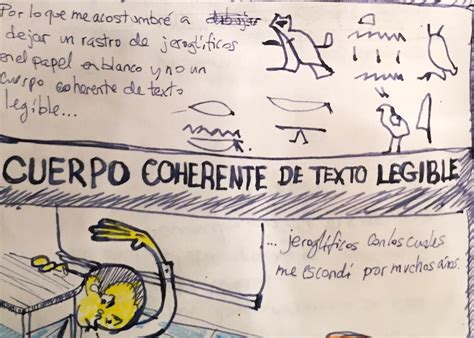 Por lo que me acostumbré a dibujar
dejar un rastro de jeroglíficos
en el papel en blanco y no un
cuerpo coherente de texto
legible...
CUERPO COHERENTE DE TEXTO LEGIBLE
... jeroglíficos con los cuales
me escondí por muchos años.